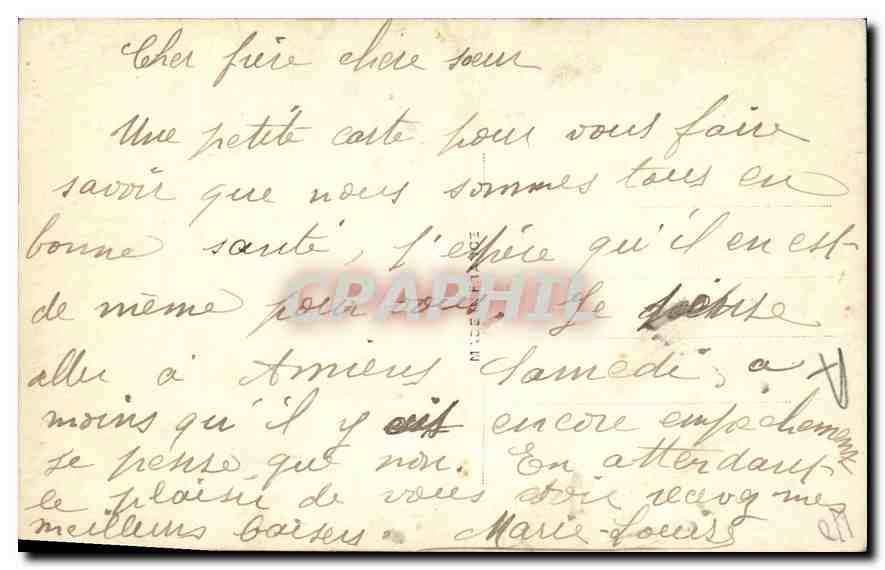 Cher frère chère sœur
Une petite carte pour vous faire
savoir que nous sommes tous en
bonne santé, j'espère qu'il en est
de même pour vous. Je pense
aller à Amiens Samedi, a
moins qu'il y ait encore empêchement
je pense que non. En attendant
le plaisir de vous voir recevez mes
meilleurs baisers. Marie-Louise
CPAPHIL